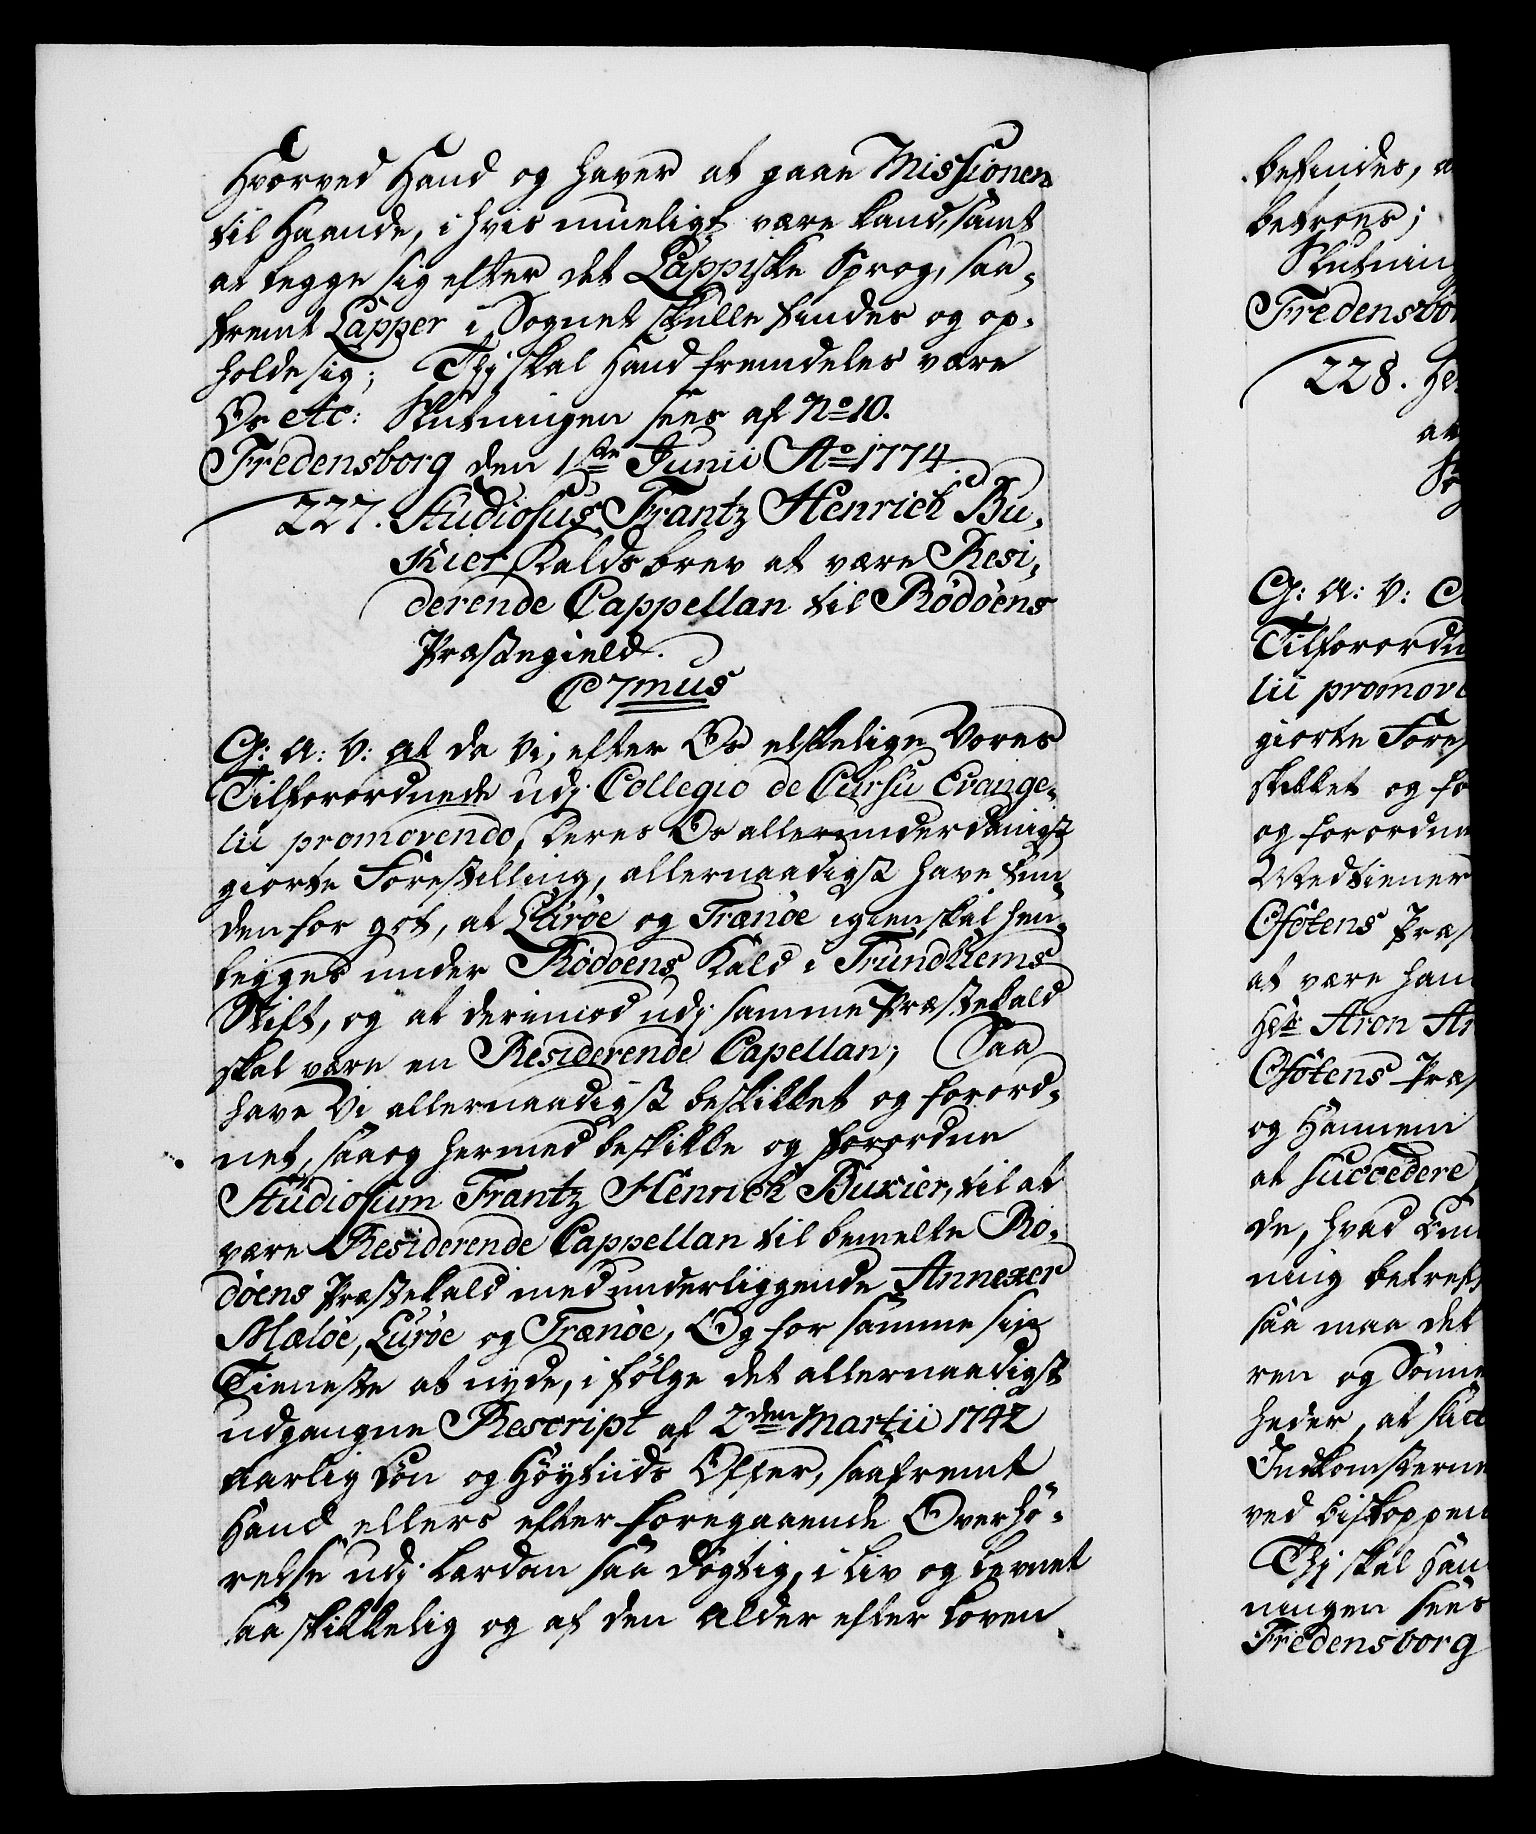 Hvorved Hand og haver at gaae Missionen
til Haande, i hvis mueligt være kand, samt
at legge sig efter det Lappiske Sprog, saa-
fremt Lapper i Sognet skulle findes og op-
holde sig; Thj skal Hand fremdeles være
Os etc: Slutningen sees af No 10.
Fredensborg den 1ste Junii Ao 1774.
227. Studiosus Frantz Henrich Bu-
xier Kalds brev at være Resi-
derende Cappellan til Rödöens
Præstegield.
C 7mus
G: A: V: at da Vi, efter Os elskelige Vores
Tilforordnede udj Collegio de Cursu Evange-
lii promovendo, deres Os allerunderdanigst
giorte Forestilling, allernaadigst have fun-
den for got, at Luröe og Trænöe igien skal hen-
legges under Rödöens Kald i Trundhiems
Stift, og at derimod udj samme Præstekald
skal være en Residerende Capellan; Saa
have Vi allernaadigst beskikket og forord-
net, saa og hermed beskikke og forordne
Studiosum Frantz Henrich Buxier, til at
være Residerende Cappellan til bemelte Rö-
döens Præstekald med underliggende Annexer
Melöe, Luröe og Trænöe, Og for samme sin
Tieneste at nyde, i fölge det allernaadigst
udgangne Rescript af 2den Martii 1742
aarlig Lön og Höytiids Offer, saafremt
Hand ellers efter foregaaende Overhö-
relse udj Lærdom saa dögtig, i Liv og Levnet
saa skikkelig og af den Alder efter Loven
befindes, a
betroes;
Slutning
Fredensbor
228. He
at
G: A: V: 
Tilforordn
lii promove
giorte Fores
skikket og fo
og forordne
Medtiener
Ofötens Præs
at være han
Hr Aron Ar
Ofötens Præs
og Hannem
at succedere
de, hvad Em
ning betref
saa maa det
ren og Sönne
heder, at
Indkomsterne
ved Biskoppen
Thj skal Han
ningen sees
Fredensborg